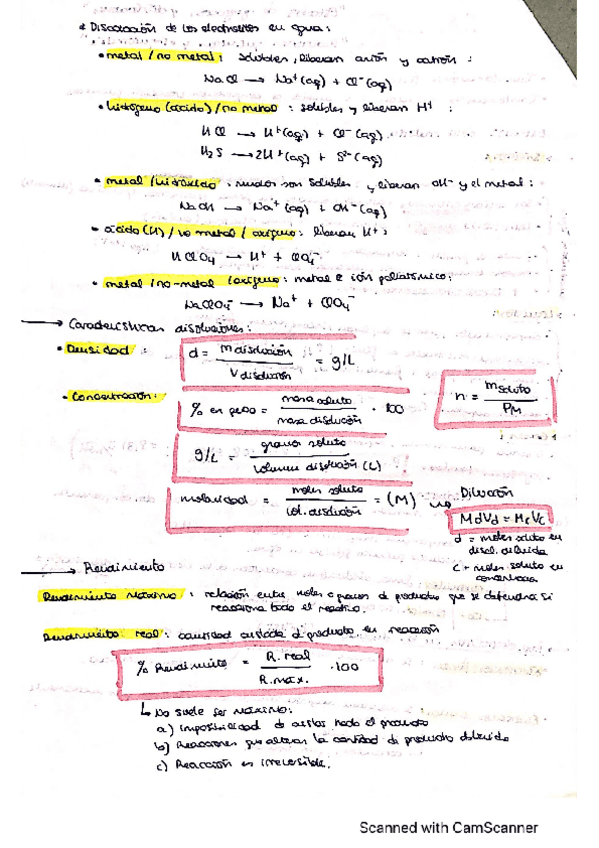 * Disociación de los electrolitos en agua:
• metal / no metal: solubles, liberan anión y catión:
NaCl → Na⁺(aq) + Cl⁻(aq)
• hidrógeno (ácido) / no metal: solubles y liberan H⁺:
HCl → H⁺(aq) + Cl⁻(aq)
H₂S → 2H⁺(aq) + S²⁻(aq)
• metal / hidróxido: son solubles y liberan OH⁻ y el metal:
NaOH → Na⁺(aq) + OH⁻(aq)
• ácido (H) / no metal / oxígeno: liberan H⁺:
HClO₄ → H⁺ + ClO₄⁻
• metal / no-metal / oxígeno: metal e ión poliatómico:
NaClO₄ → Na⁺ + ClO₄⁻
→ Características disoluciones:
• Densidad: d = m disolución / V disolución = g/L
• Concentración: % en peso = masa soluto / masa disolución · 100
n = m soluto / PM
g/L = gramos soluto / volumen disolución (L)
molaridad = moles soluto / vol. disolución = (M) Dilución
MdVd = McVc
d = moles soluto en
disol. diluida
c = moles soluto en
→ Rendimiento
Rendimiento máximo: relación entre moles o gramos de productos que se si
reacciona todo el reactivo.
Rendimiento real: cantidad aislada d producto en reacción
% Rendimiento = R. real / R. máx. · 100
↳ No suele ser máximo:
a) Imposibilidad de aislar todo el producto
b) Reacciones que alteran la cantidad de producto obtenido
c) Reacción es irreversible.
Scanned with CamScanner